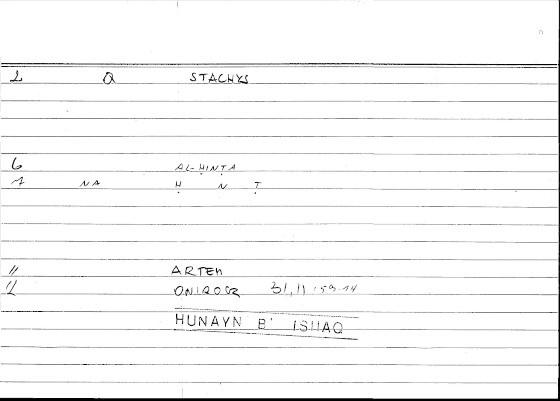 2 Q STACHYS
6 AL-ḤINṬA
7 NA Ḥ N Ṭ
11 ARTEM
12 ONIROCR 31,11
HUNAYN B' ISHAQ